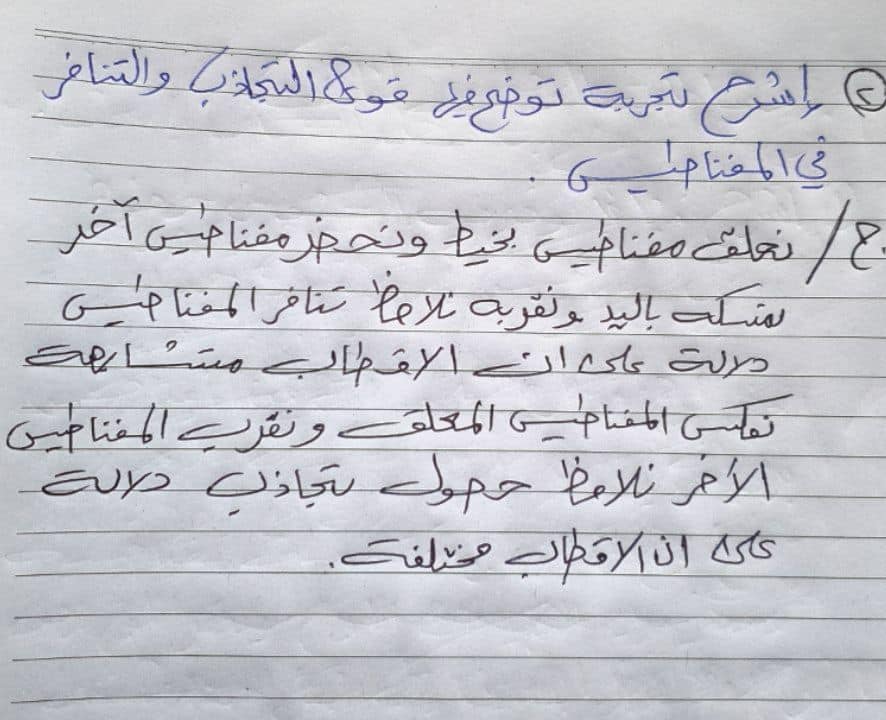 ② إشرح تجربة توضح فيها قوى التجاذب والتنافر
في المغناطيس .
ج/ نعلق مغناطيس بخيط ونحضر مغناطيس آخر
نمسكه باليد ونقربه نلاحظ تنافر المغناطيس
دلالة على ان الاقطاب متشابهة
نعكس المغناطيس المعلق ونقرب المغناطيس
الأخر نلاحظ حصول تجاذب دلالة
على ان الاقطاب مختلفة.